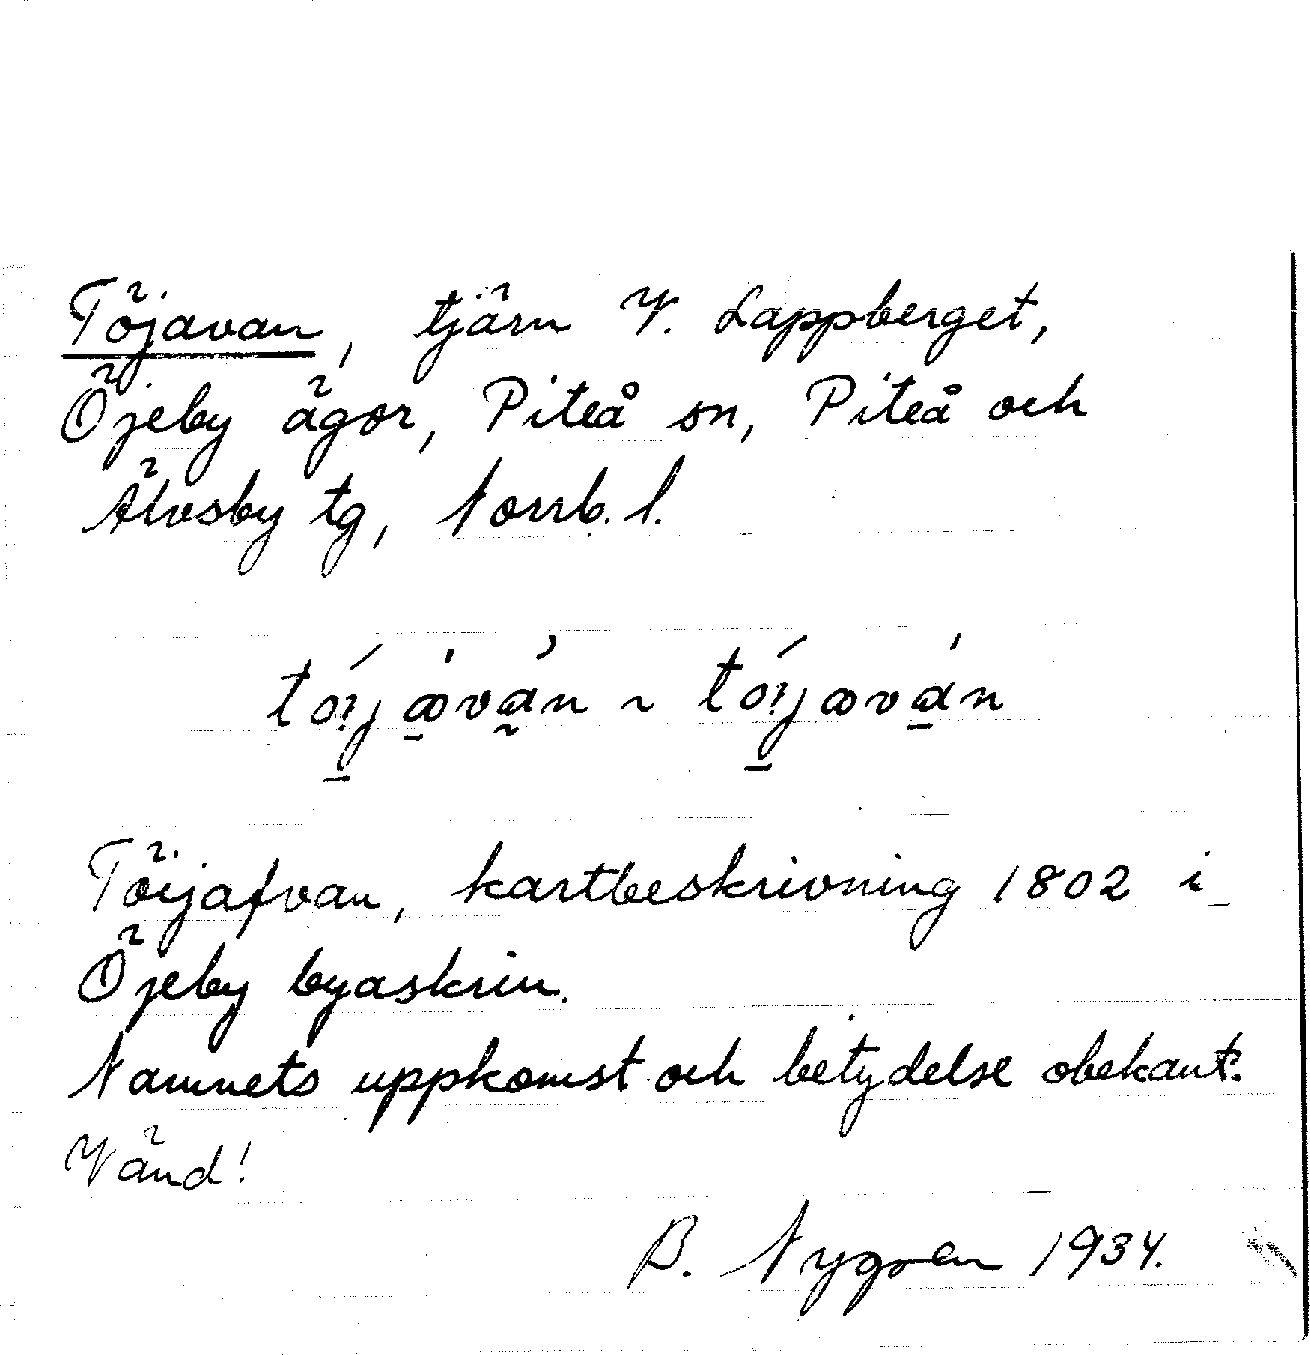 Töjavan, tjärn V. Lappberget,
Öjeby ägor, Piteå sn, Piteå och
Älvsby tg, Norrb. l.
Töijafvan, kartbeskrivning 1802 i
Öjeby byaskrin.
Namnets uppkomst och betydelse obekant.
Vänd!
B. Nygren 1934.